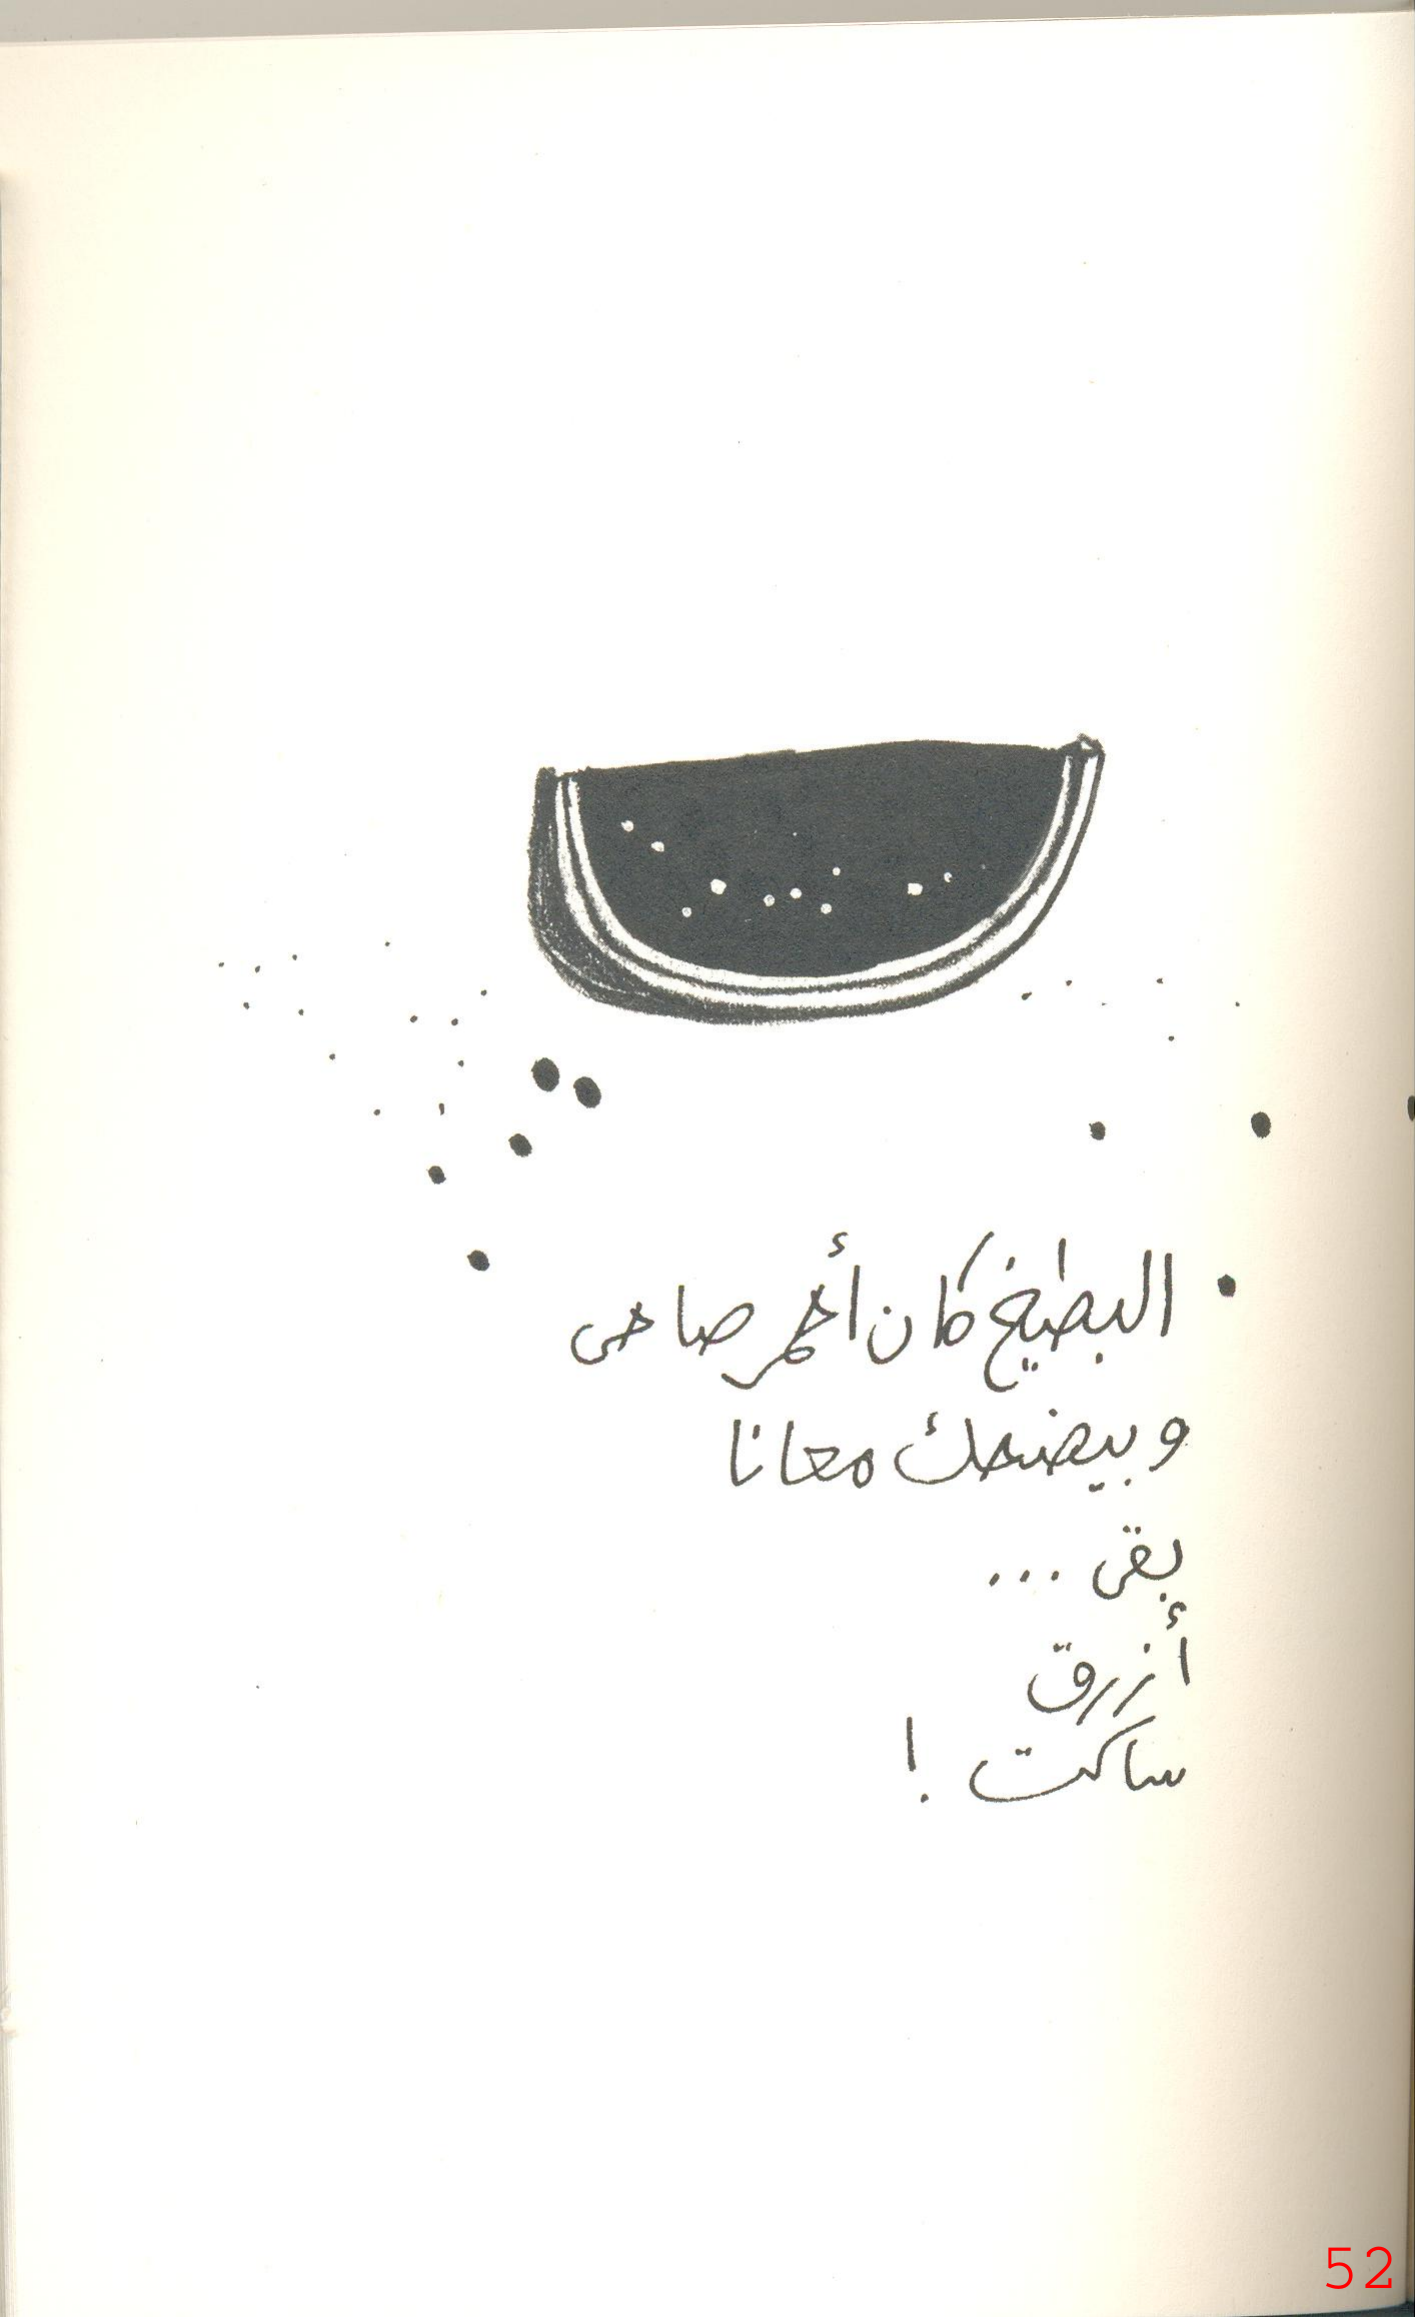 البطيخ كان أحمر صاحى
وبيضحك معانا
بقى ...
أزرق
ساكت !
52